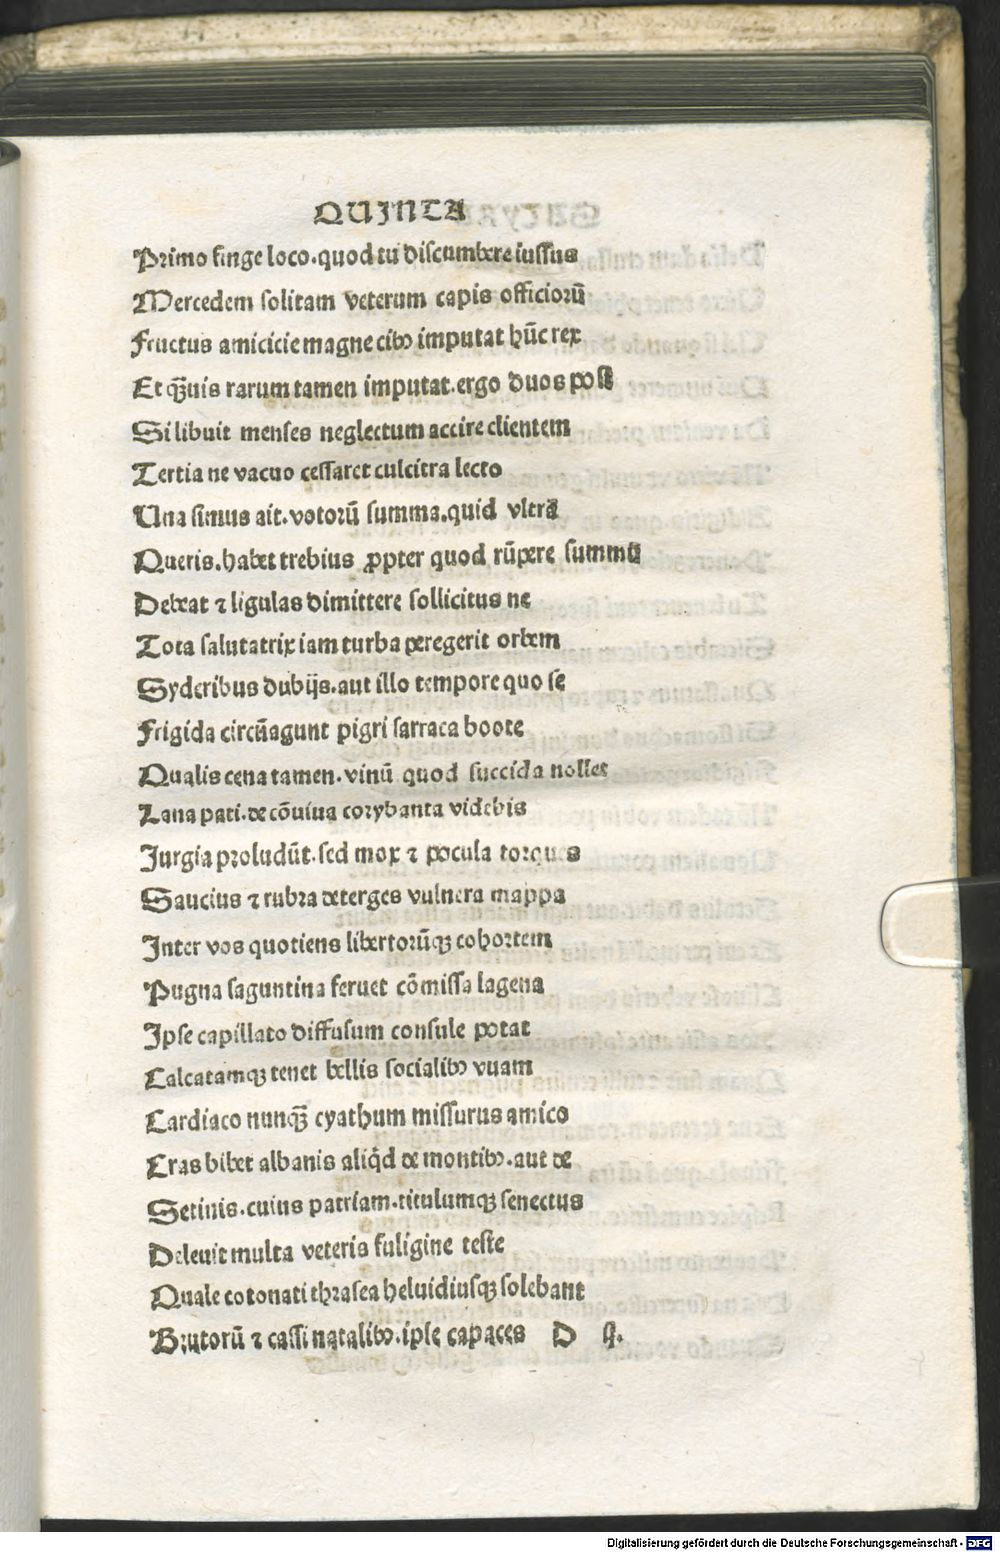 QUINTA
Primo finge loco.quod tu discumbere iussus
Mercedem solitam veterum capis officiorū
Fructus amicicie magne cibꝰ imputat hūc rex
Et qȝuis rarum tamen imputat.ergo duos post
Si libuit menses neglectum accire clientem
Tertia ne vacuo cessaret culcitra lecto
Una simus ait.votorū summa.quid vltra
Queris.habet trebius ꝓpter quod rūpere summū
Debeat ⁊ ligulas dimittere sollicitus ne
Tota salutatrix iam turba peregerit orbem
Syderibus dubijs.aut illo tempore quo se
Frigida circūagunt pigri sarraca boote
Qualis cena tamen.vinū quod succida nollet
Lana pati.de cōuiua corybanta videbis
Jurgia proludūt.sed mox ⁊ pocula torques
Saucius ⁊ rubra deterges vulnera mappa
Inter vos quotiens libertorūqȝ cohortem
Pugna saguntina feruet cōmissa lagena
Ipse capillato diffusum consule potat
Calcatamqȝ tenet bellis socialibꝰ vuam
Cardiaco nunqȝ cyathum missurus amico
Cras bibet albanis aliqd de montibꝰ.aut de
Setinis.cuius patriam.titulumqȝ senectus
Deleuit multa veteris fuligine teste
Quale cotonati thrasea heluidiusqȝ solebant
Brutorū ⁊ cassi natalibꝰ.ipse capaces D
Digitalisierung gefördert durch die Deutsche Forschungsgemeinschaft - DFG